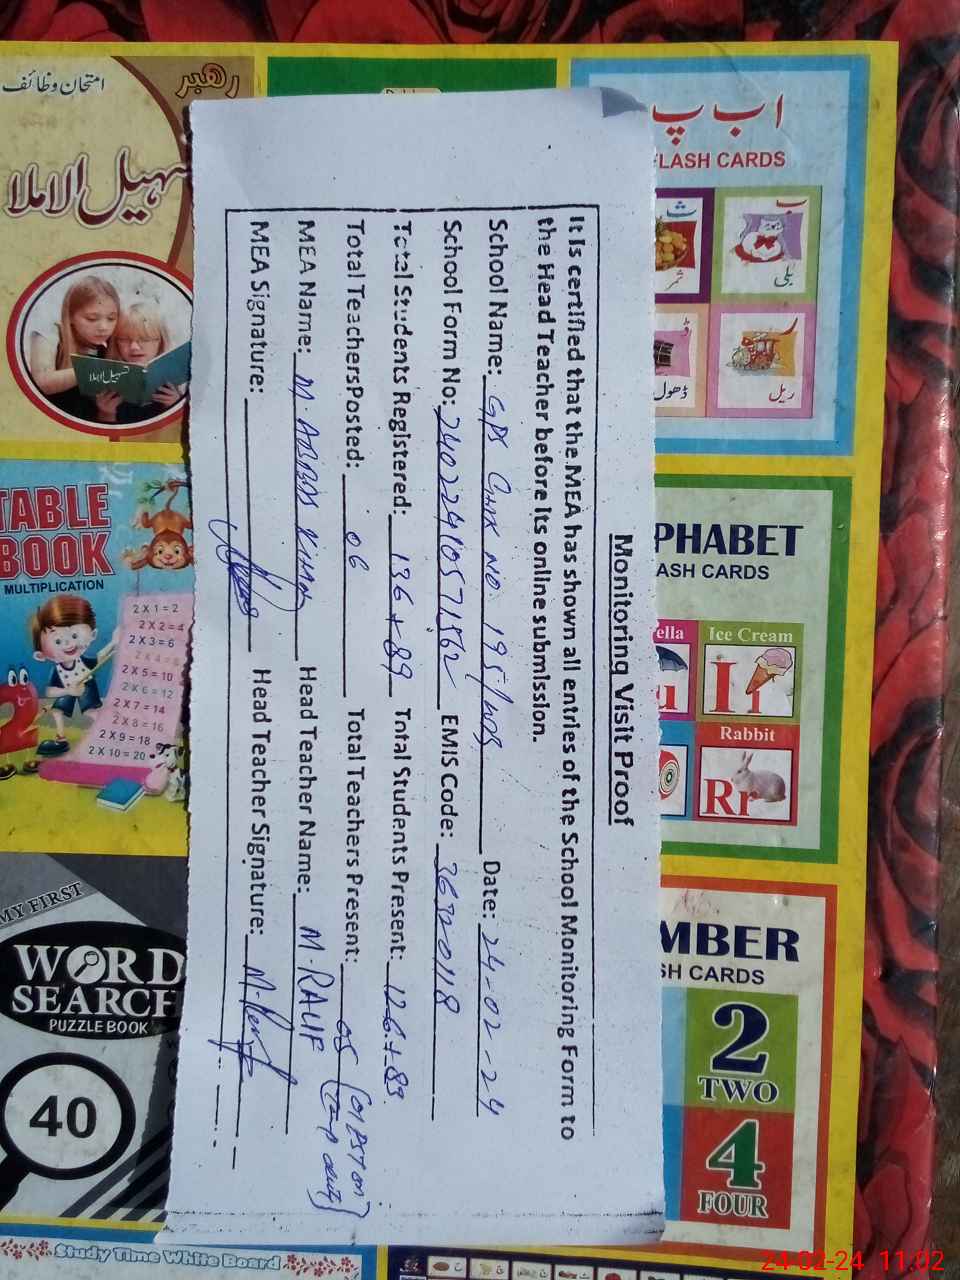 Monitoring Visit Proof
It is certified that the MEA has shown all entries of the School Monitoring Form to
the Head Teacher before its online submission.
School Name: GPS Chak No 195/WB Date: 24-02-24
School Form No: EMIS Code: 36320118
Total Students Registered: 136 + 89 Total Students Present: 126 + 89
Total Teachers Posted: 06 Total Teachers Present: 05 (01 PST on
Temp duty)
MEA Name: M. ABBAS Head Teacher Name: M. RAUF
MEA Signature: Head Teacher Signature:
امتحان وظائف
رهبر
تسہیل الاملا
تسہیل الاملا
ا ب پ
LASH CARDS
ث
ثمر
ب
بلی
ڈ
ڈھول
ر
ریل
TABLE
BOOK
MULTIPLICATION
2 X 1 = 2
2 X 2 = 4
2 X 3 = 6
2 X 4 = 8
2 X 5 = 10
2 X 6 = 12
2 X 7 = 14
2 X 8 = 16
2 X 9 = 18
2 X 10 = 20
2
PHABET
ASH CARDS
ella
u
Ice Cream
Ii
Rabbit
Rr
MY FIRST
WORD
SEARCH
PUZZLE BOOK
40
MBER
SH CARDS
2
TWO
4
FOUR
Study Time White Board
24-02-24 11:02